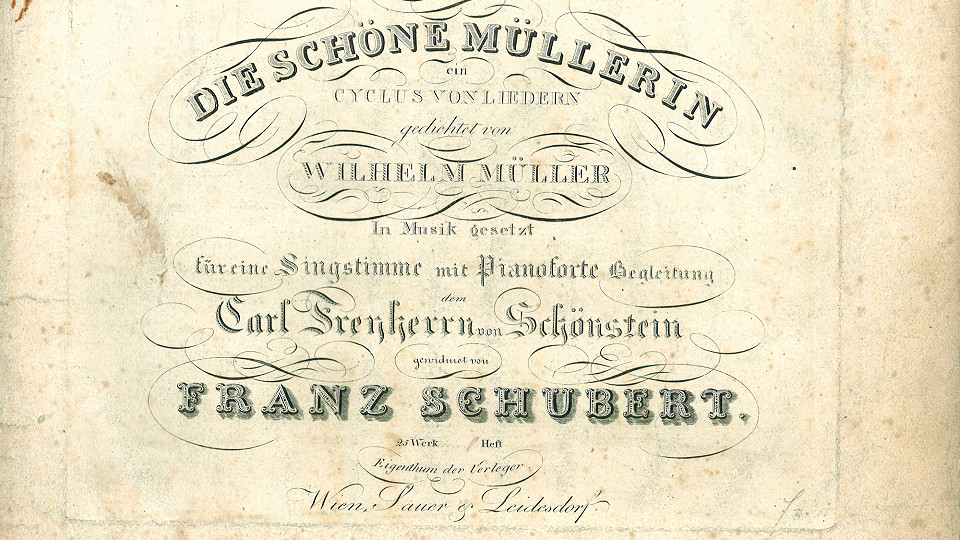 DIE SCHÖNE MÜLLERIN
ein
CYCLUS VON LIEDERN
gedichtet von
WILHELM MÜLLER
In Musik gesetzt
für eine Singstimme mit Pianoforte Begleitung
dem
Carl Freyherrn von Schönstein
gewidmet von
FRANZ SCHUBERT.
25 Werk . . . Heft
Eigenthum der Verleger.
Wien, Sauer & Leidesdorf